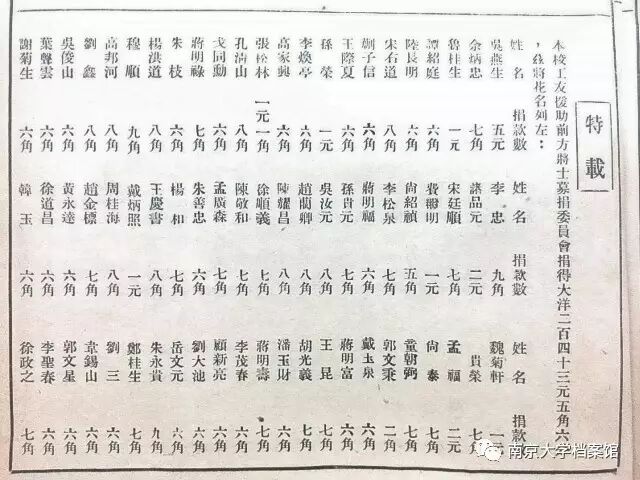 特載
本校工友援助前方將士募捐委員會捐得大洋二百四十三元五角六
，茲將花名列左：
姓名 捐款數 姓名 捐款數 姓名 捐款
吳燕生 五元 李忠 九角 魏菊軒 一元
余炳忠 七角 諸品元 二元 貴榮 七角
魯桂生 一元 宋廷順 七角 孟福 二元
譚紹庭 六角 明 一元 尙泰 七角
陸長明 六角 尙紹禎 五角 童朝弼 七角
宋右道 八角 李松泉 七角 郭文秉 二角
子信 六角 蔣明福 六角 戴玉泉 六角
王際夏 六角 孫貴元 七角 蔣明富 六角
孫榮 一元 吳汝元 八角 王昆 七角
李煥亭 六角 趙蘭卿 八角 胡光義 七角
高家興 六角 陳耀昌 八角 潘玉財 六角
張松林 一元一角 徐順義 七角 蔣明壽 七角
孔清山 八角 陳敬和 七角 李茂春 六角
戈同勳 六角 孟廣森 七角 顧新亮 六角
蔣明祿 七角 朱善忠 六角 劉大池 六角
朱枝 六角 楊和 七角 岳文元 六角
楊洪道 八角 王慶書 八角 朱永貴 九角
穆順 九角 戴炳照 一元 鄭桂生 七角
高邦河 八角 周桂海 八角 劉三 六角
劉鑫 八角 趙金標 七角 韋錫山 六角
吳俊山 六角 黃永達 六角 郭文星 六角
葉聲雲 六角 徐道昌 六角 李聖春 六角
謝菊生 六角 韓玉 六角 徐政之 七角
南京大学档案馆